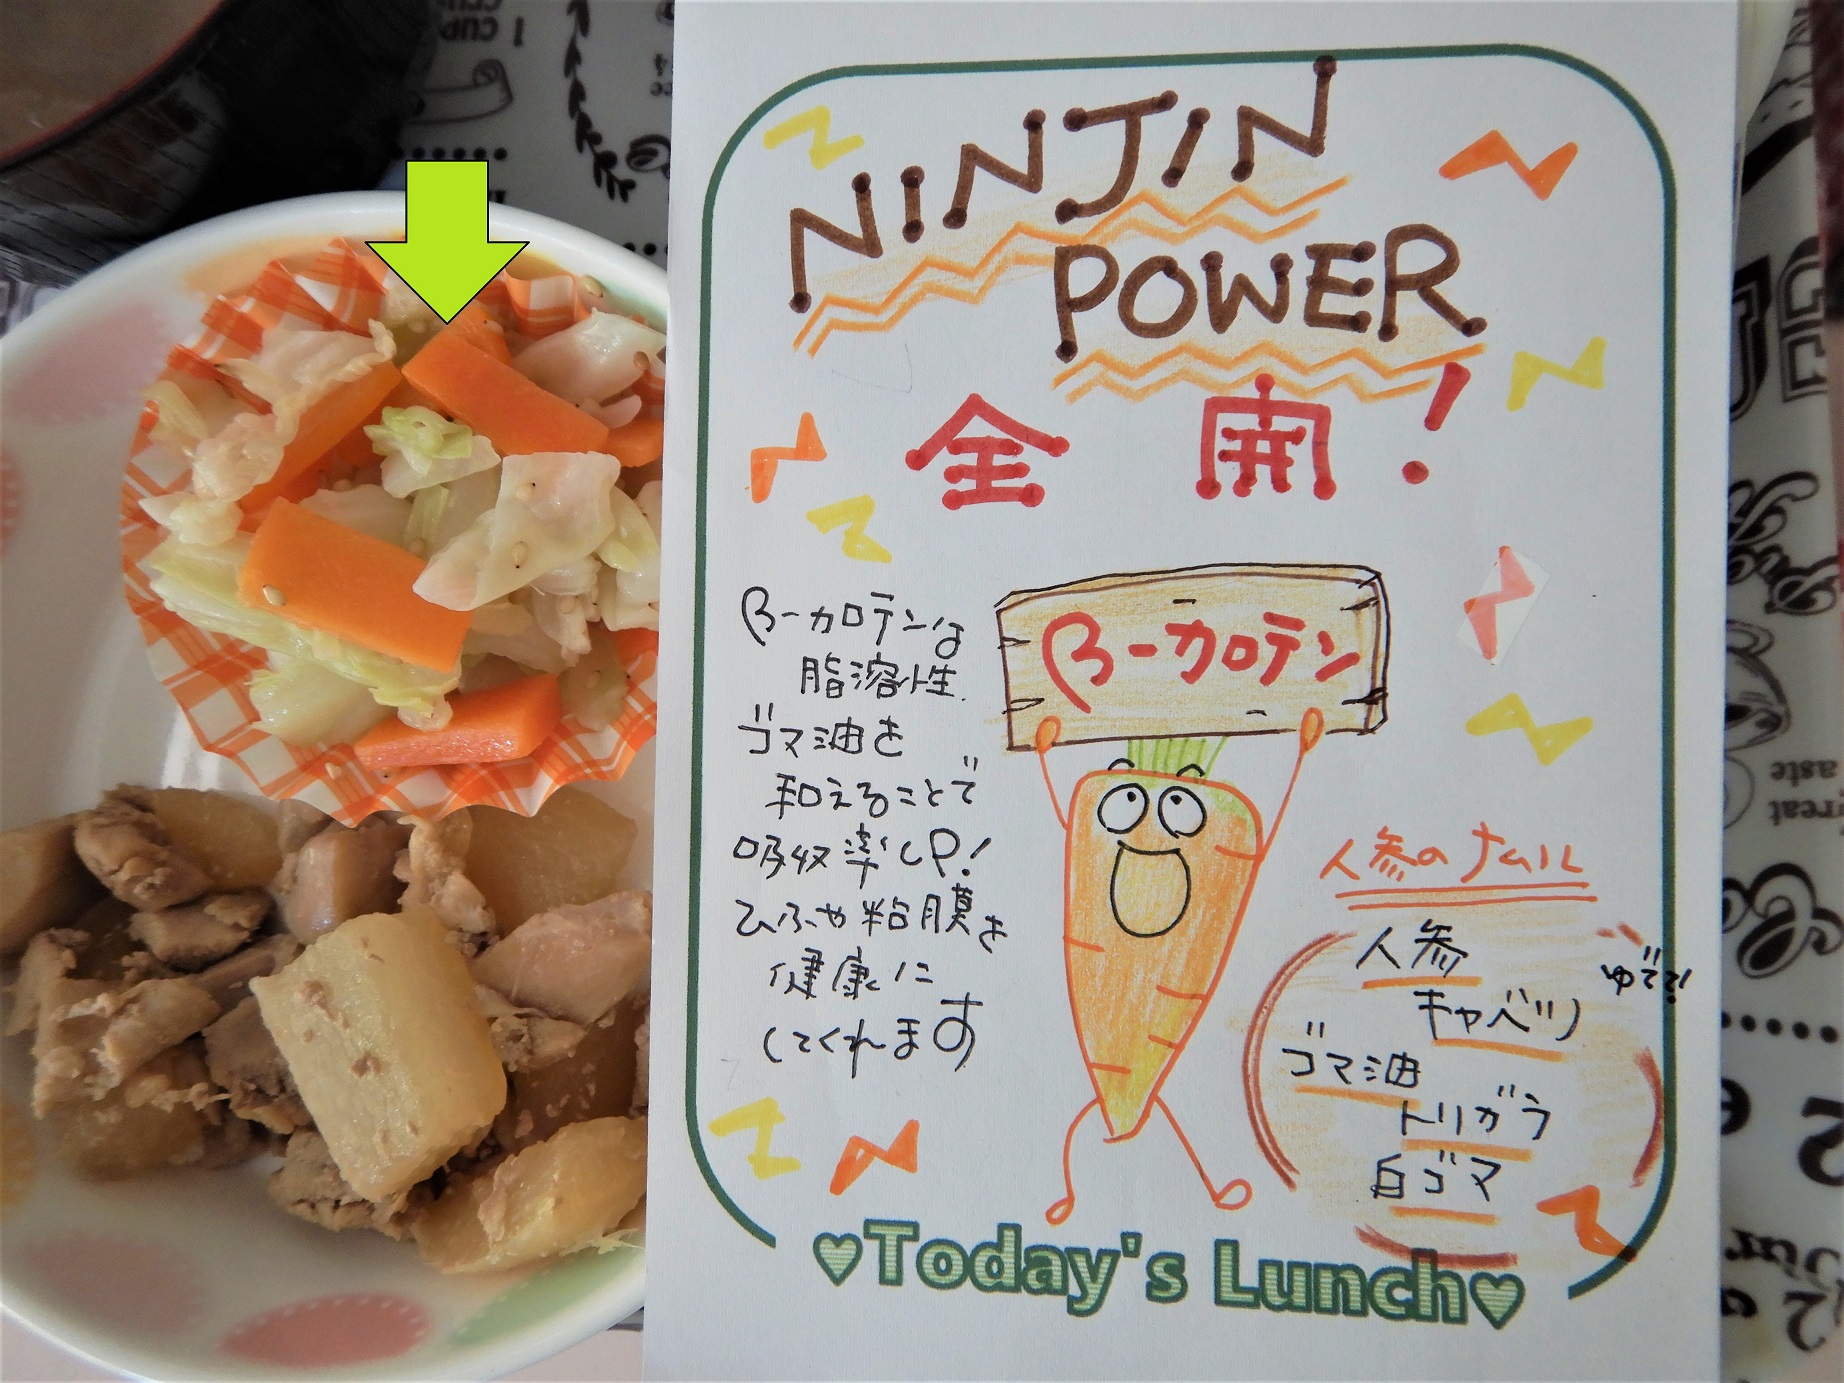 NINJIN
POWER
全開!
β-カロテンは
脂溶性
ゴマ油を
和えることで
吸収率UP!
ひふや粘膜を
健康に
してくれます
β-カロテン
人参のナムル
人参
ゆでて!
キャベツ
ゴマ油
トリガラ
白ゴマ
♥Today's Lunch♥
1 CUP